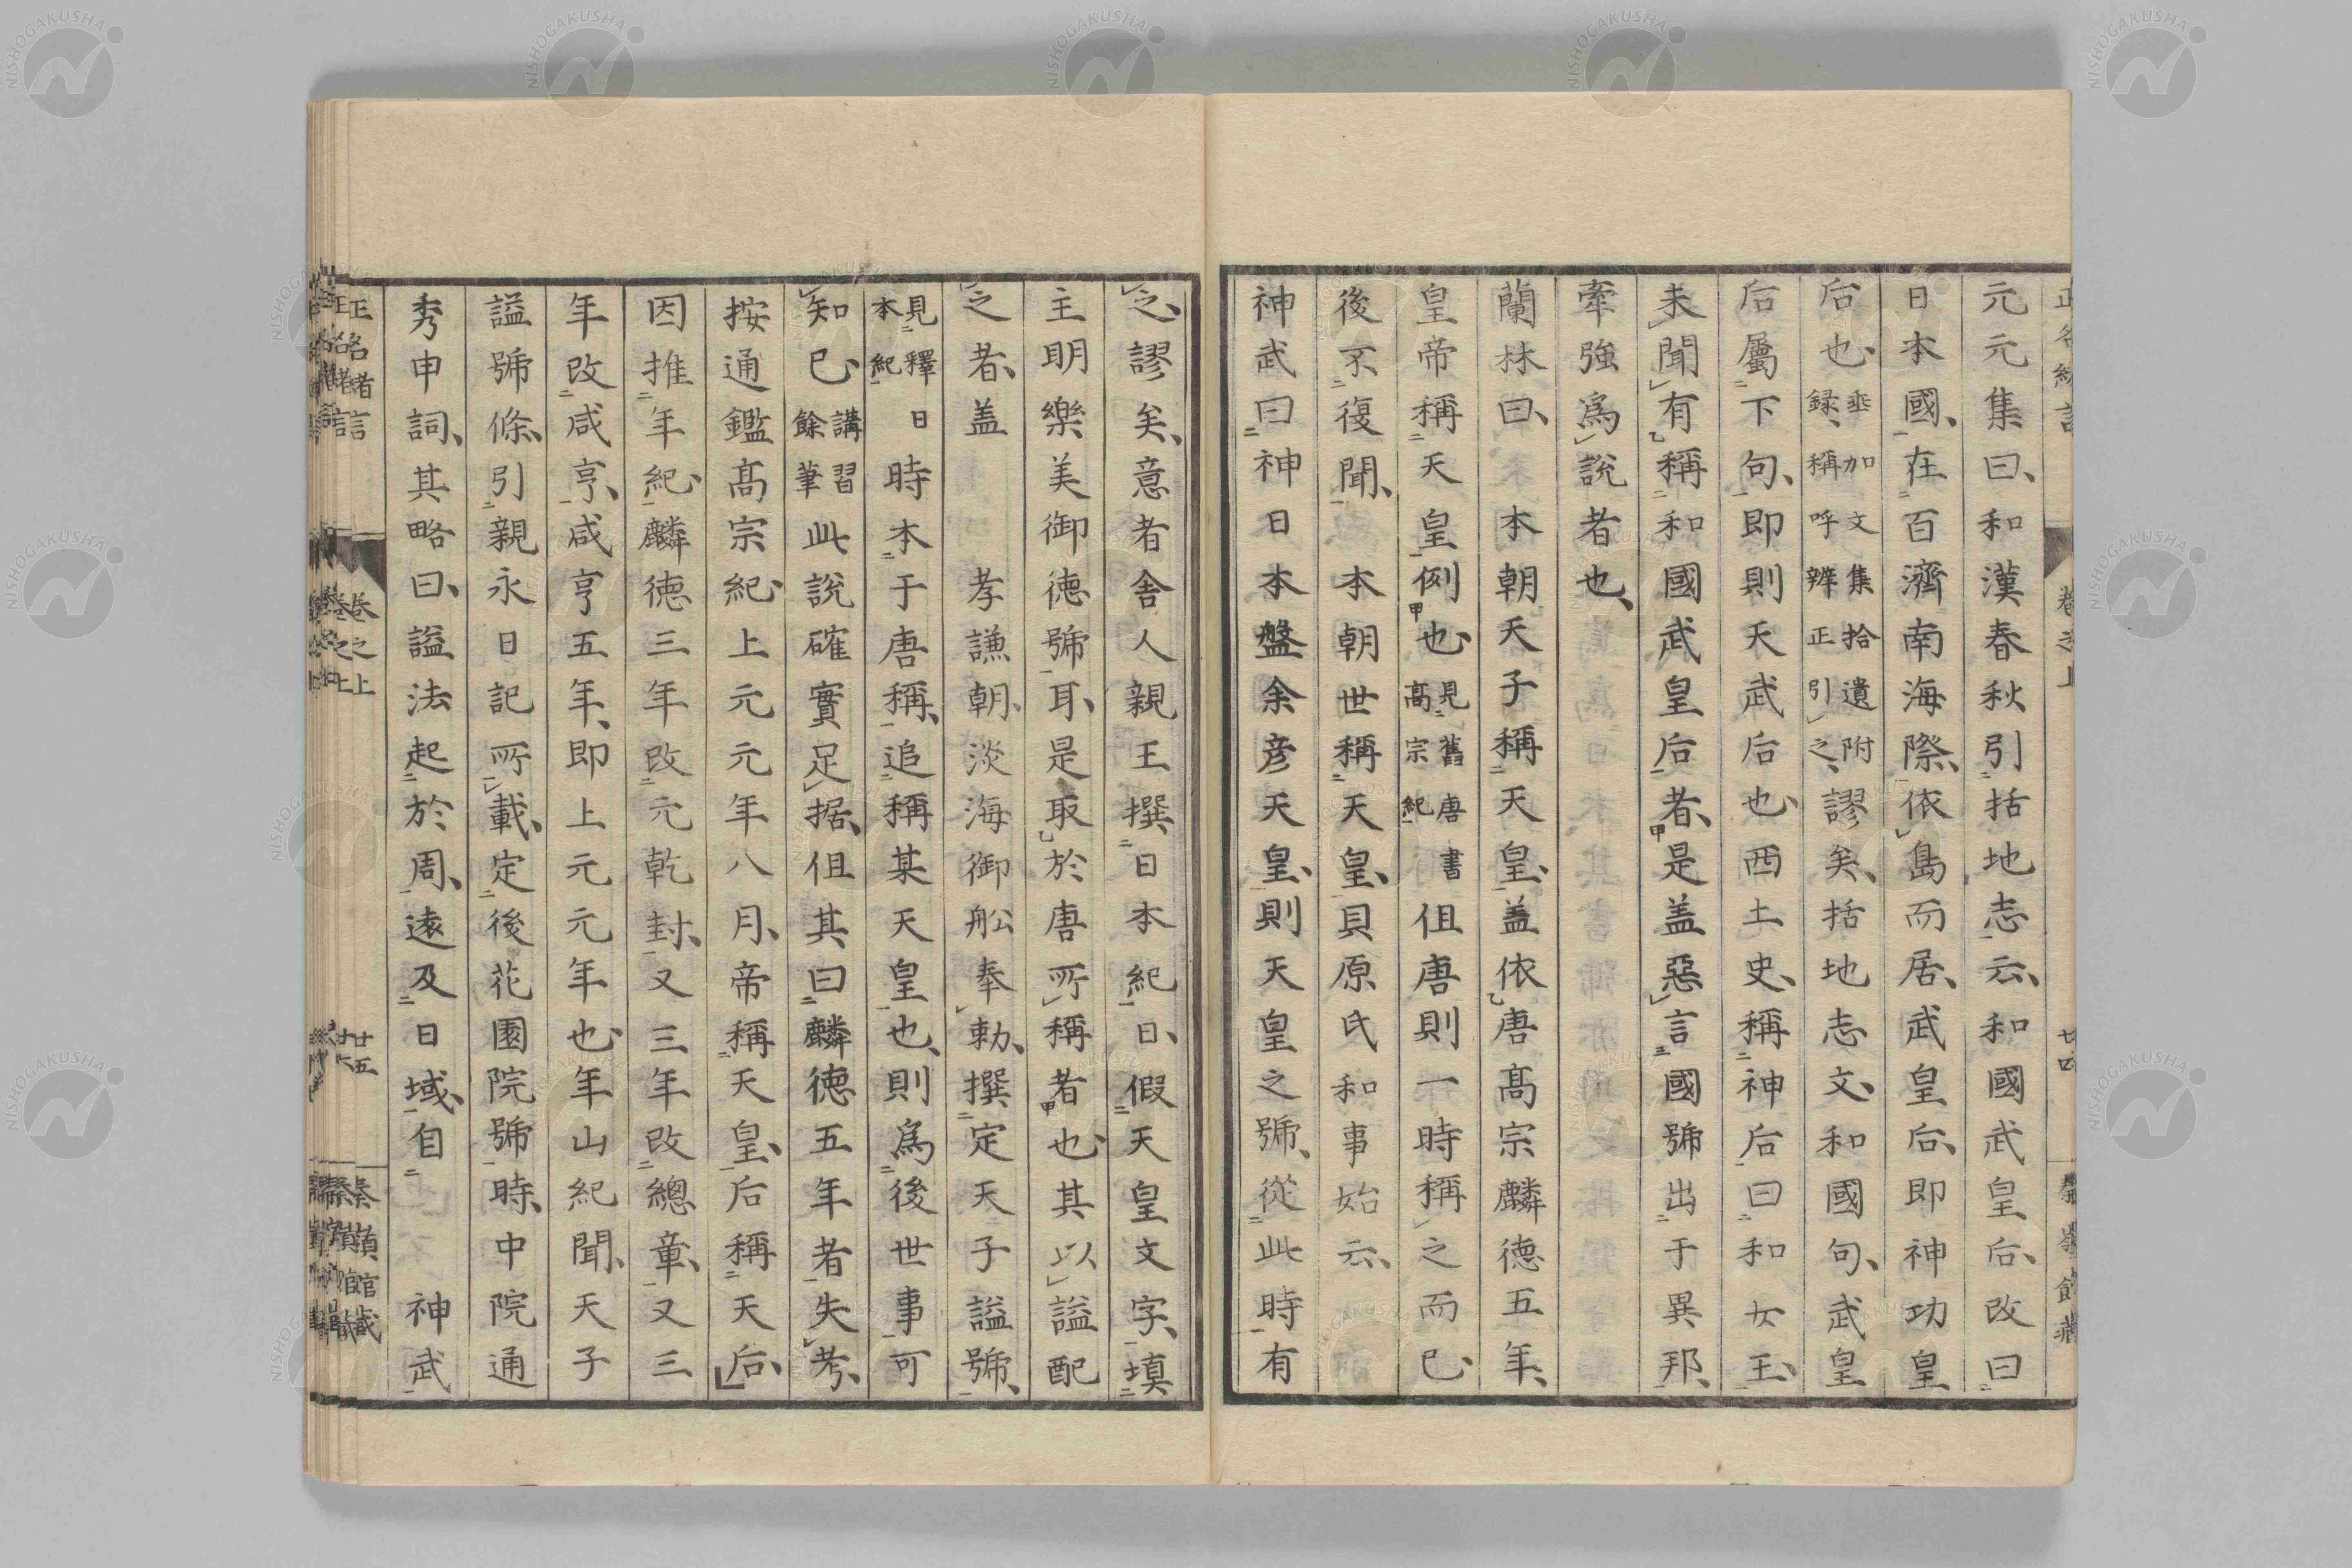 元元集曰、和漢春秋引括地志云、和國武皇后、改曰
日本國、在百濟南海際、依島而居、武皇后、即神功皇
后也、垂加文集拾遺附錄、稱呼辨正引之、謬矣、括地志文、和國句、武皇
后屬下句、即則天武后也、西土史、稱神后曰和女王、
未聞有稱和國武皇后者、是盖惡言國號出于異邦、
牽強爲說者也、
蘭林曰、本朝天子稱天皇、盖依唐高宗麟德五年、
皇帝稱天皇例也、見舊唐書高宗紀但唐則一時稱之而已、
後不復聞、本朝世稱天皇、貝原氏和事始云、
神武曰神日本盤余彦天皇、則天皇之號、從此時有
之、謬矣、意者舍人親王撰日本紀日、假天皇文字、填
主明樂美御德號耳、是取於唐所稱者也、其以謚配
之者、盖孝謙朝、淡海御船奉勅、撰定天子謚號、
見釋日本紀時本于唐稱、追稱某天皇也、則爲後世事可
知已、講習餘筆此說確實足据、但其曰麟德五年者失考、
按通鑑高宗紀、上元元年八月、帝稱天皇、后稱天后、
因推年紀、麟德三年改元乾封、又三年改總章、又三
年改咸亨、咸亨五年、即上元元年也、年山紀聞、天子
謚號條、引親永日記所載、定後花園院號時、中院通
秀申詞、其略曰、謚法起於周、遠及日域、自神武
正名緒言
卷之上
廿五